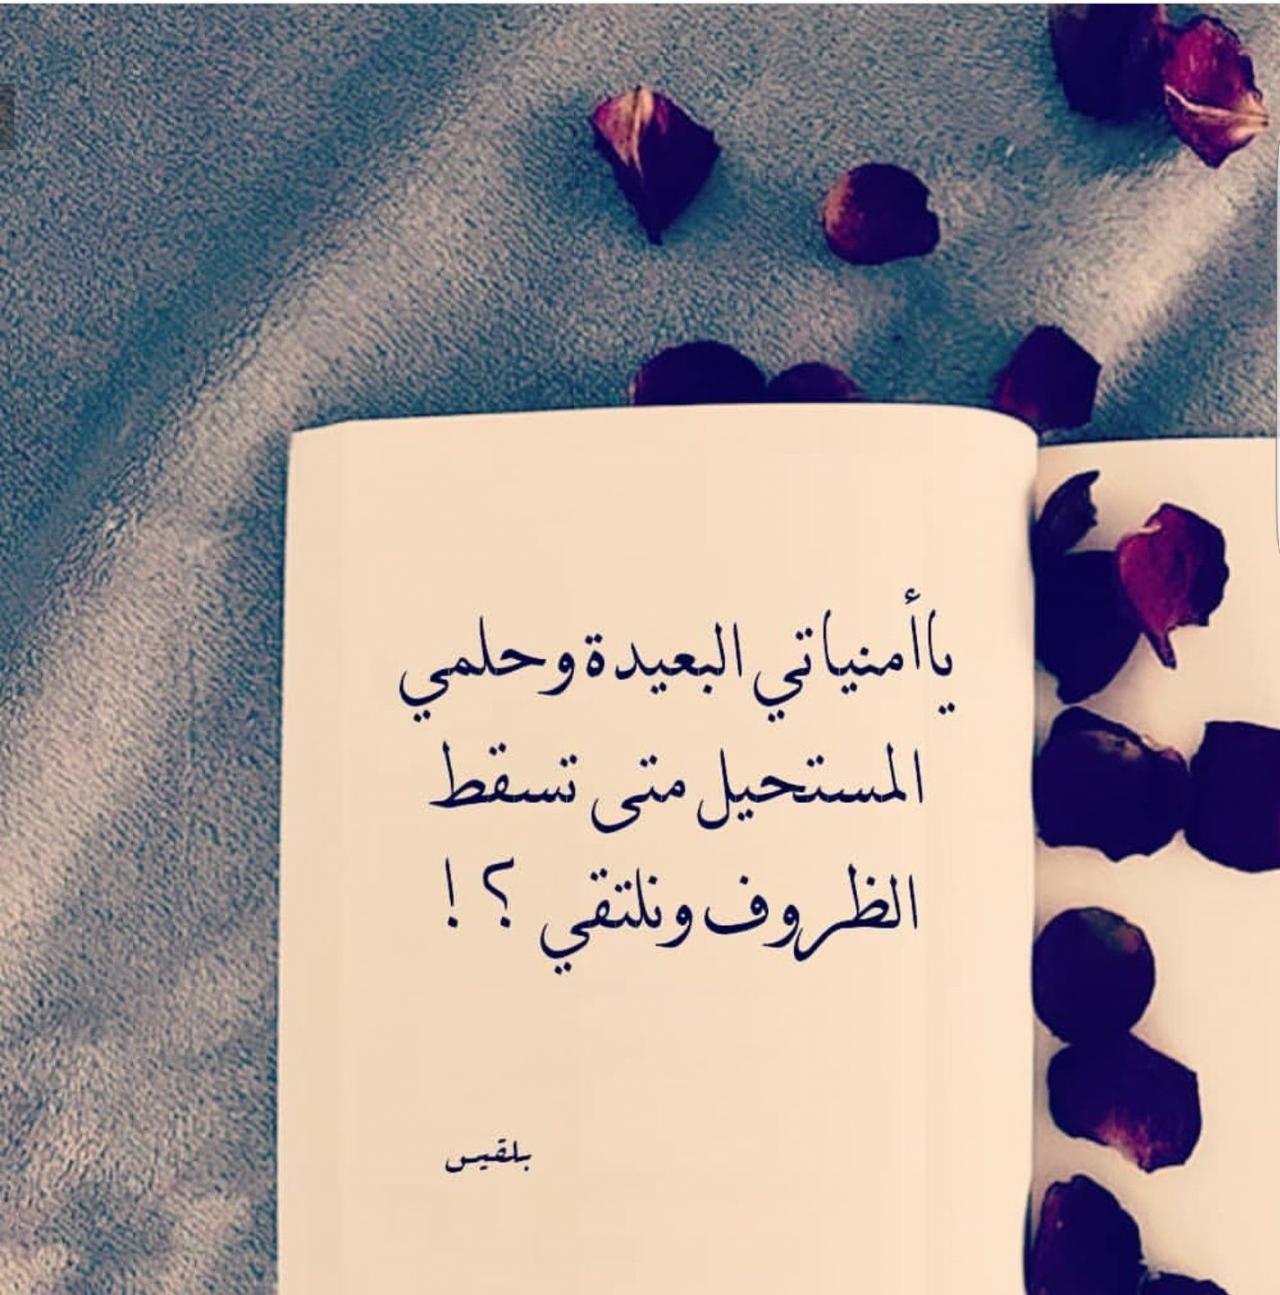 ياأمنياتي البعيدة وحلمي
المستحيل متى تسقط
الظروف ونلتقي ؟ !
بلقيس